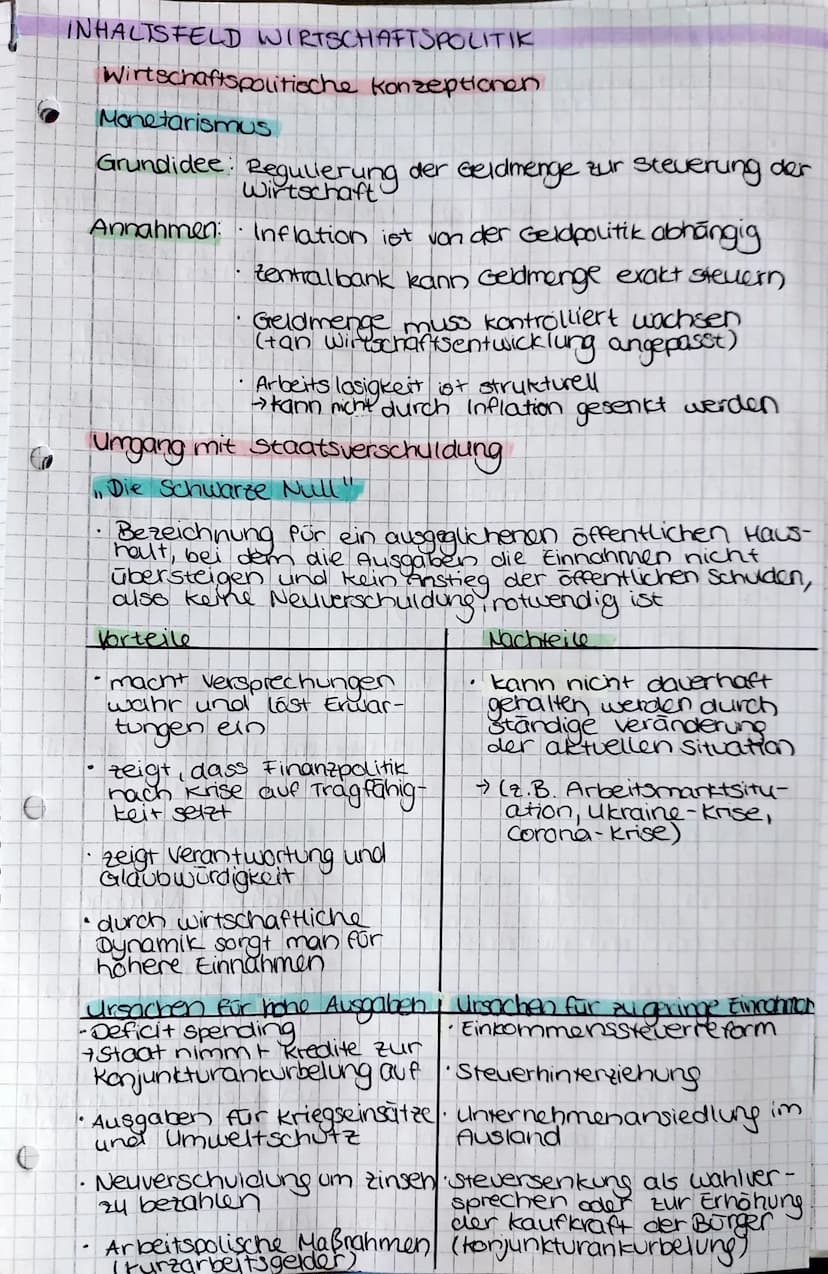 INHALTSFELD WIRTSCHAFTSPOLITIK
Wirtschaftspolitische Konzeptionen
Monetarismus
Grundidee: Regulierung der Geldmenge zur Steuerung der
Wirtschaft
Annahmen: · Inflation ist von der Geldpolitik abhängig
· Zentralbank kann Geldmenge exakt steuern
· Geldmenge muss kontrolliert wachsen
(+an Wirtschaftsentwicklung angepasst)
· Arbeitslosigkeit ist strukturell
→ kann nicht durch Inflation gesenkt werden
Umgang mit Staatsverschuldung
„Die Schwarze Null"
· Bezeichnung für ein ausgeglichenen öffentlichen Haus-
halt, bei dem die Ausgaben die Einnahmen nicht
übersteigen und kein Anstieg der öffentlichen Schulden,
also keine Neuverschuldung, notwendig ist
Vorteile
· macht Versprechungen
wahr und löst Erwar-
tungen ein
· zeigt, dass Finanzpolitik
nach Krise auf Tragfähig-
keit setzt
· zeigt Verantwortung und
Glaubwürdigkeit
· durch wirtschaftliche
Dynamik sorgt man für
höhere Einnahmen
Nachteile
· kann nicht dauerhaft
gehalten werden durch
ständige Veränderung
der aktuellen Situation
→ (z.B. Arbeitsmarktsitu-
ation, Ukraine-Krise,
Corona-Krise)
Ursachen für hohe Ausgaben
- Deficit spending
→ Staat nimmt Kredite zur
Konjunkturankurbelung auf
· Ausgaben für Kriegseinsätze
und Umweltschutz
· Neuverschuldung um Zinsen
zu bezahlen
· Arbeitspolische Maßnahmen
(Kurzarbeitsgelder)
Ursachen für zu geringe Einnahmen
· Einkommenssteuerreform
· Steuerhinterziehung
· Unternehmenansiedlung im
Ausland
· Steuersenkung als Wahlver-
sprechen oder zur Erhöhung
der Kaufkraft der Bürger
(Konjunkturankurbelung)